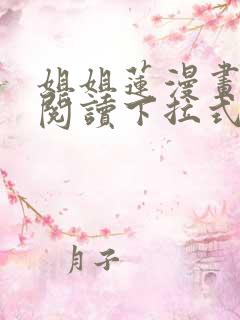 姐姐蓮漫畫
閱讀下拉式
月子